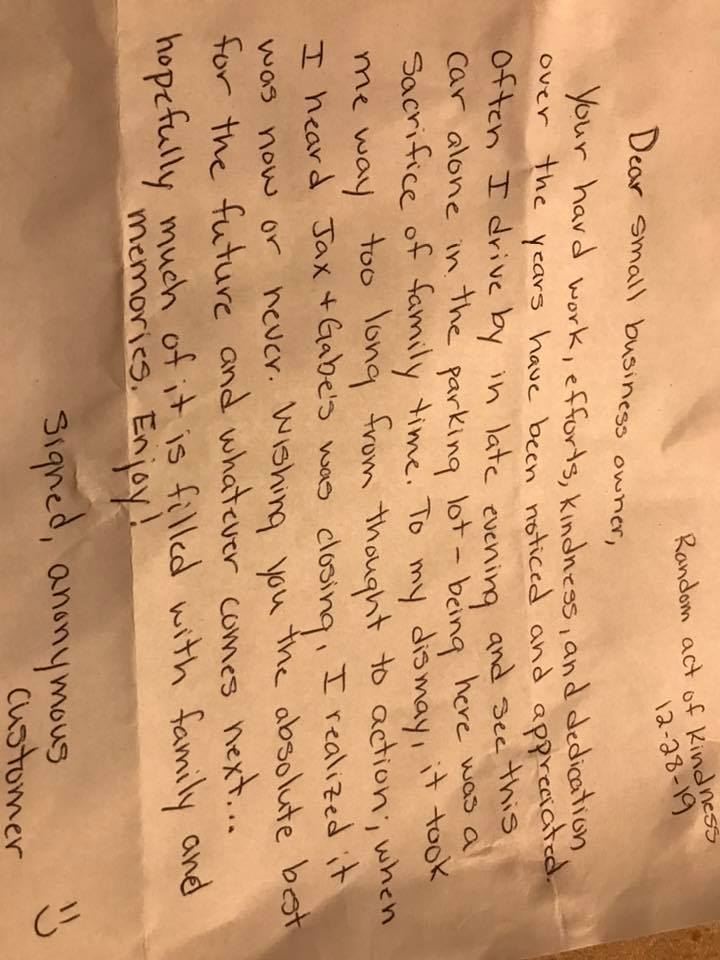 Random act of Kindness
12-28-19
Dear small business owner,
Your hard work, efforts, kindness, and dedication
over the years have been noticed and appreciated.
Often I drive by in late evening and see this
car alone in the parking lot - being here was a
sacrifice of family time. To my dismay, it took
me way too long from thought to action; when
I heard Jax + Gabe's was closing, I realized it
was now or never. Wishing you the absolute best
for the future and whatever comes next...
hopefully much of it is filled with family and
memories. Enjoy!
Signed, anonymous
customer :)